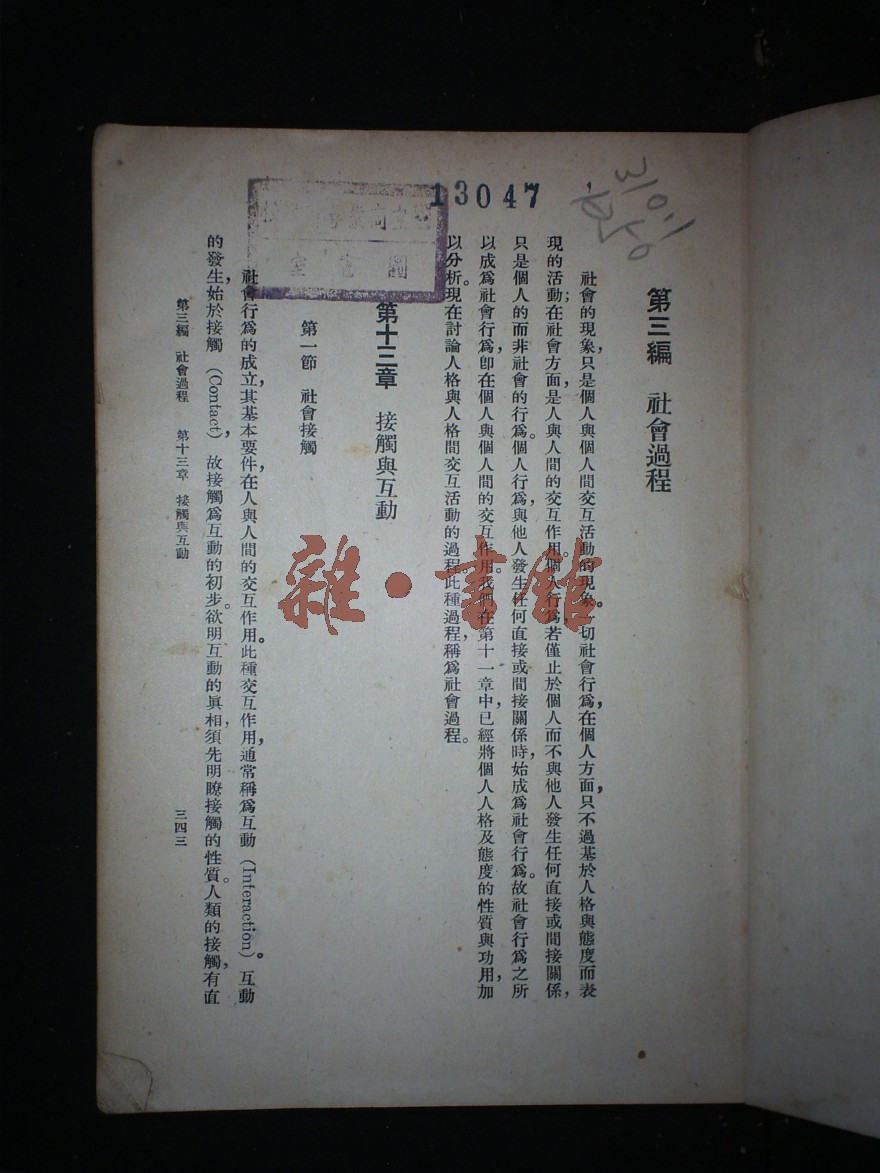 13047
310.1
第三編 社會過程
社會的現象,只是個人與個人間交互活動的現象。一切社會行爲,在個人方面,只不過基於人格與態度而表
現的活動;在社會方面,是人與人間的交互作用。個人行爲,若僅止於個人而不與他人發生任何直接或間接關係,
只是個人的而非社會的行爲。個人行爲,與他人發生任何直接或間接關係時,始成爲社會行爲。故社會行爲之所
以成爲社會行爲,卽在個人與個人間的交互作用。我們在第十一章中,已經將個人人格及態度的性質與功用,加
以分析。現在討論人格與人格間交互活動的過程。此種過程,稱爲社會過程。
第十三章 接觸與互動
第一節 社會接觸
社會行爲的成立,其基本要件,在人與人間的交互作用。此種交互作用,通常稱爲互動 (Interaction)。互動
的發生,始於接觸 (Contact),故接觸爲互動的初步。欲明互動的眞相,須先明瞭接觸的性質。人類的接觸,有直
第三編 社會過程 第十三章 接觸與互動
三四三
圖書室
雜·書館